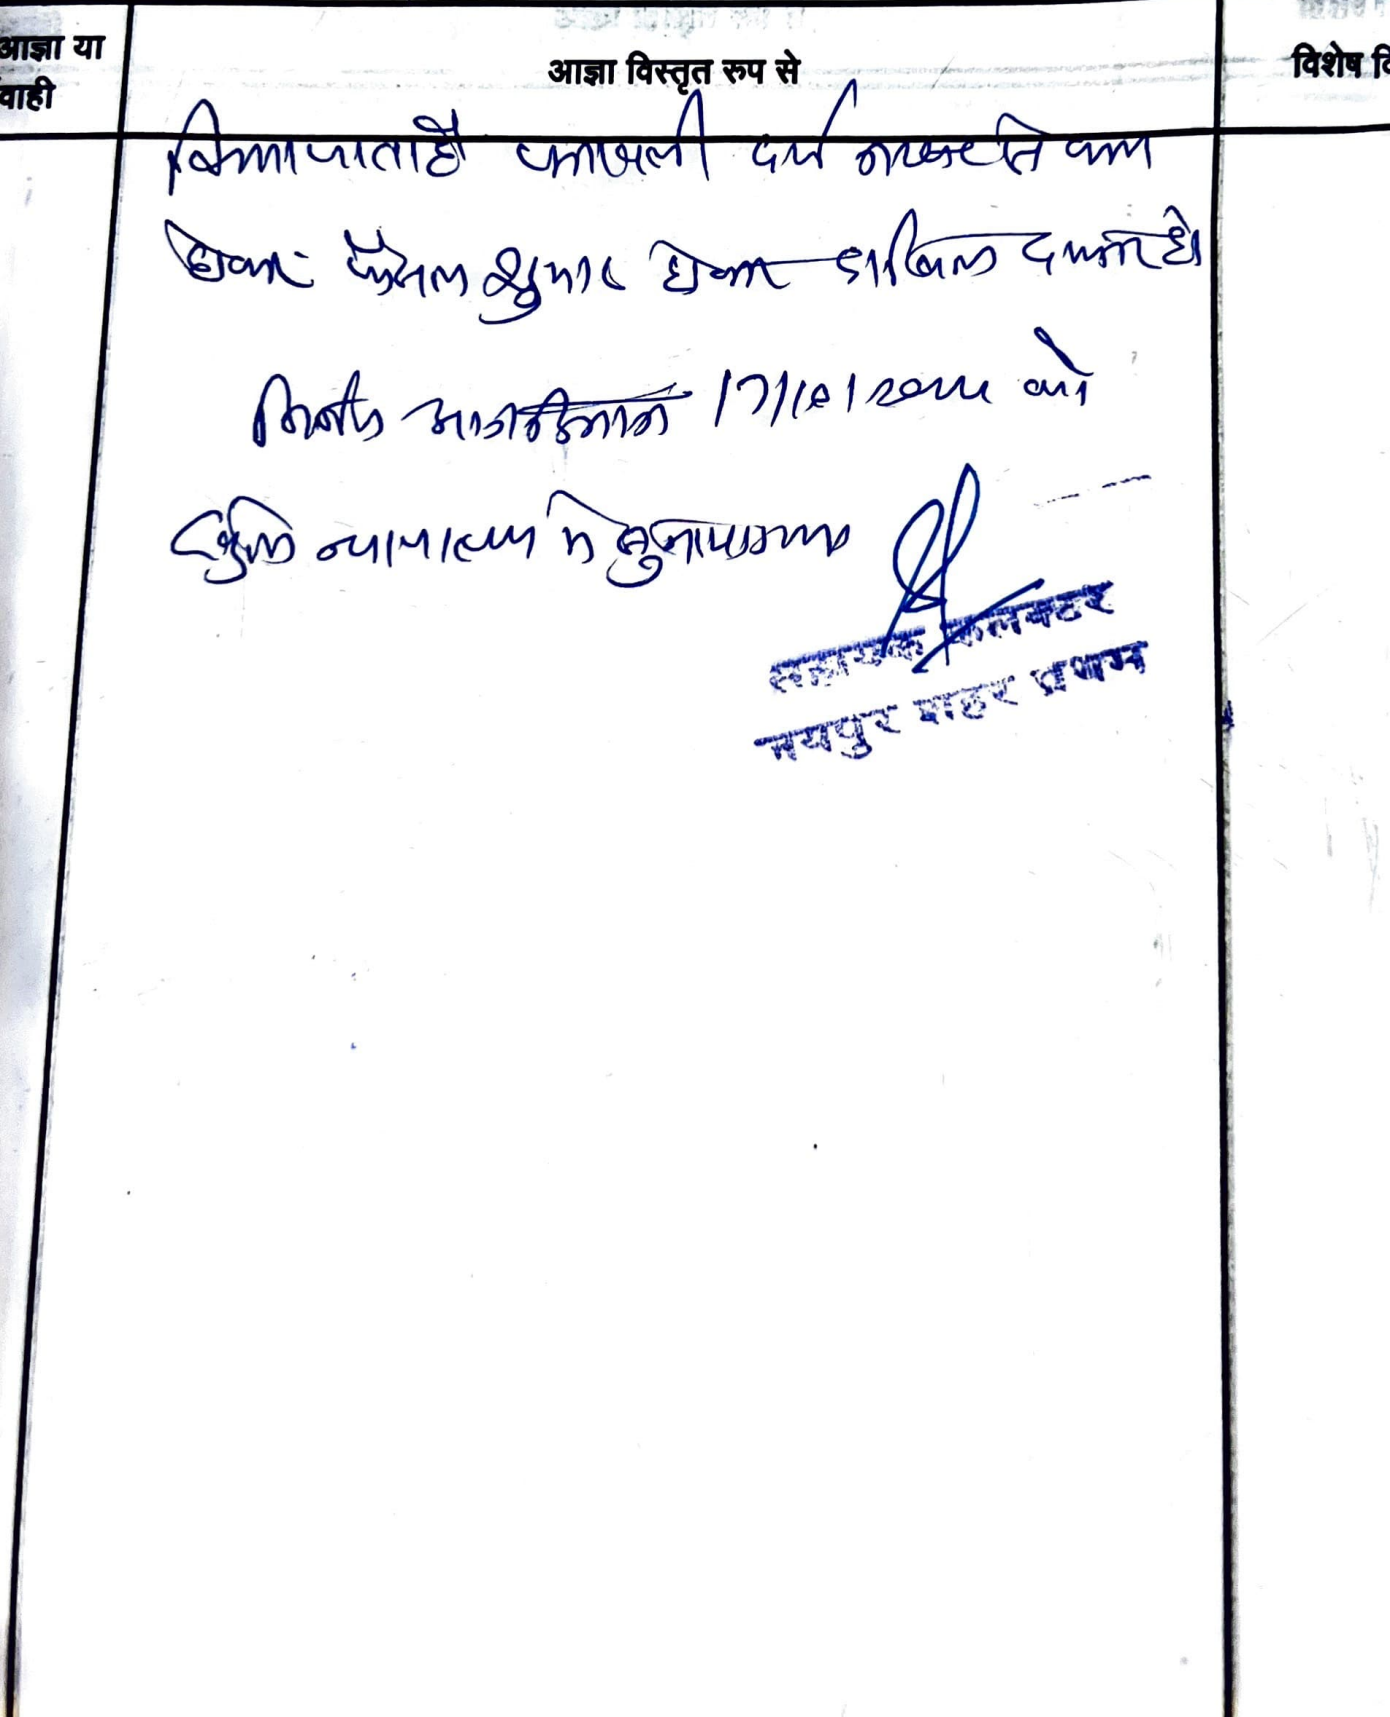 आज्ञा या
वाही
आज्ञा विस्तृत रूप से
विशेष वि
किया जाता है पत्रावली दर्ज नम्बर से कम
होकर फैसल शुमार होकर दाखिल दफ्तर हो
निर्णय आज दिनांक 17/10/2022 को
खुले न्यायालय मे सुनाया गया
सहायक कलक्टर
जयपुर शहर प्रथम